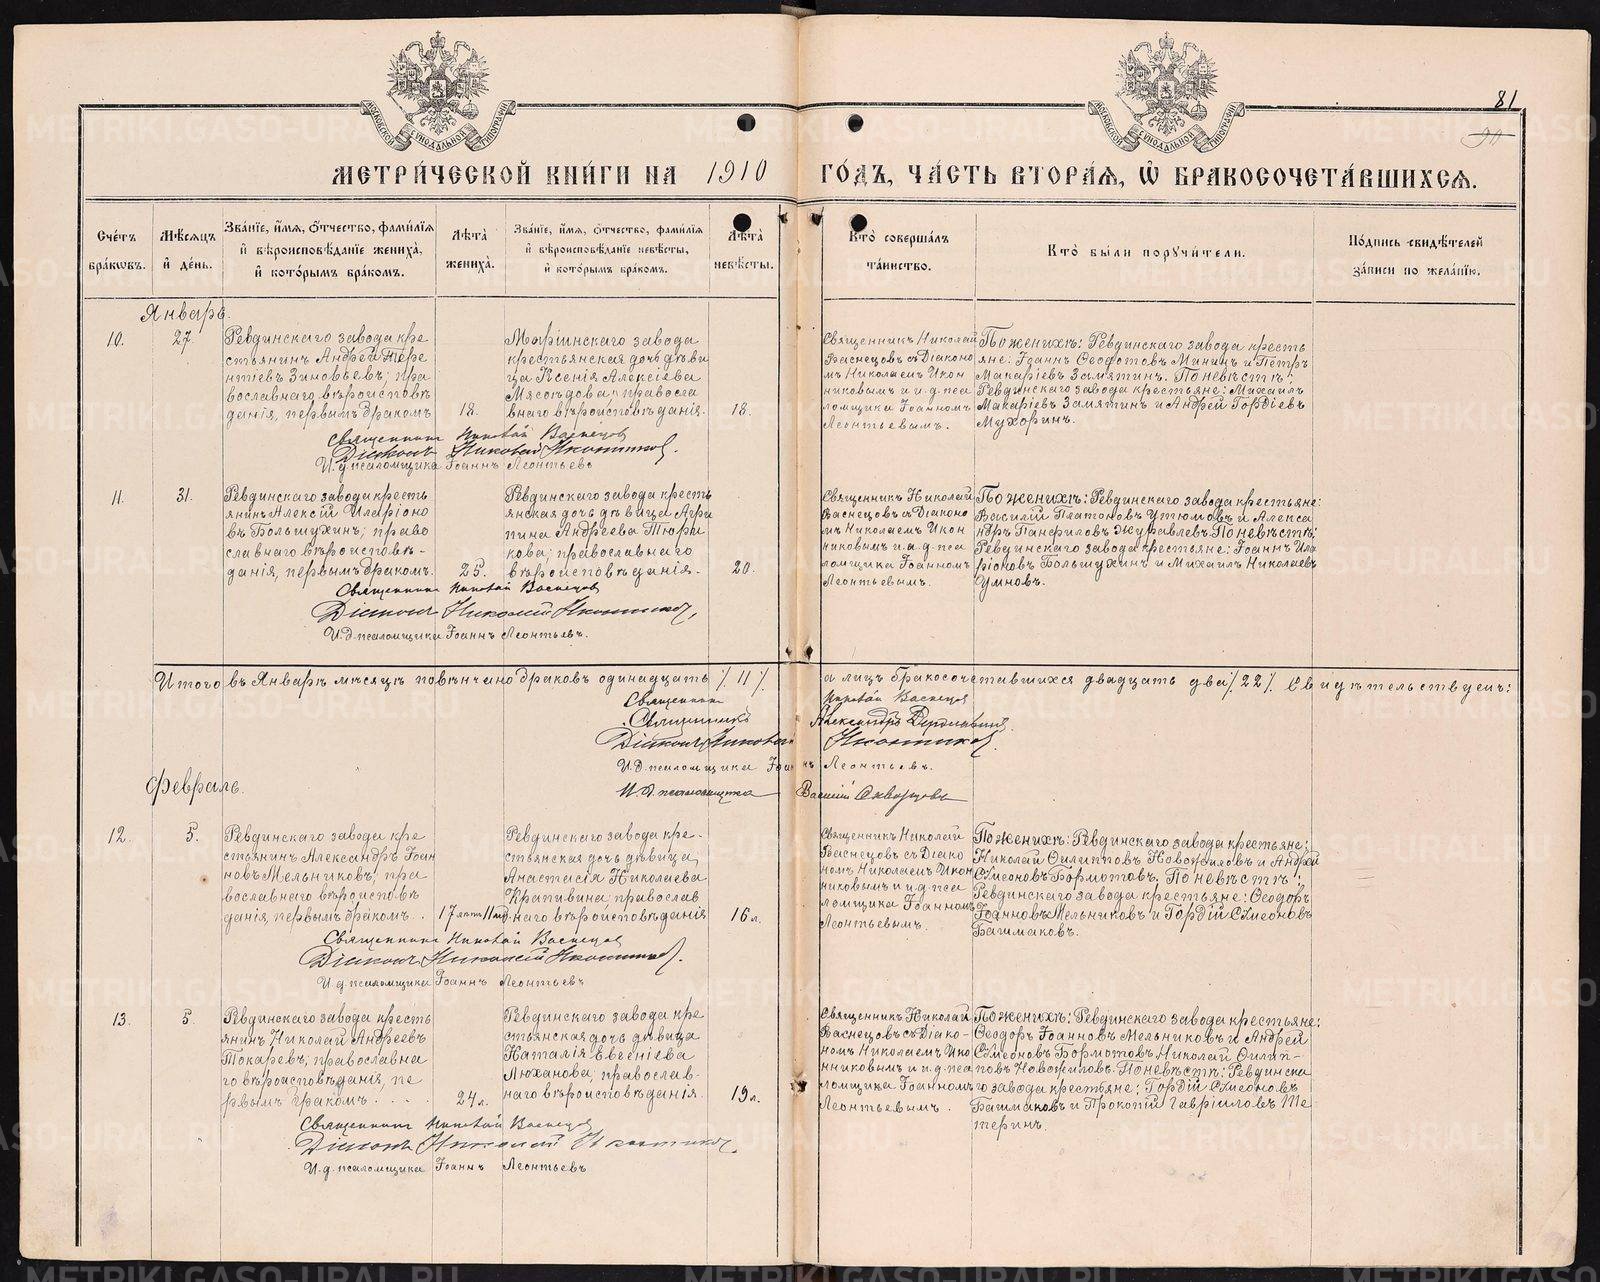 81
МЕТРИ́ЧЕСКОЙ КНИ́ГИ НА 1910 ГО́ДЪ, ЧА́СТЬ ВТОРА́Я, Ѽ БРАКОСОЧЕТА́ВШИХСЯ.
Сче́тъ бра́кѡвъ.
Мѣ́сяцъ и҆ де́нь.
Зва́нїе, и҆́мя, ѻ҆́тчество, фами́лїя и҆ вѣроисповѣ́данїе жениха̀, и҆ кото́рымъ бра́комъ.
Лѣ́та жениха̀.
Зва́нїе, и҆́мя, ѻ҆́тчество, фами́лїя и҆ вѣроисповѣ́данїе невѣ́сты, и҆ кото́рымъ бра́комъ.
Лѣ́та невѣ́сты.
Кто̀ соверша́лъ та́инство.
Кто̀ бы́ли пору́чи́тели.
По́дпись свидѣ́телей за́писи по жела́нїю.
Январь.
10.
27.
Ревдинскаго завода кре
стьянинъ Андрей Тере
нтіевъ Зиновьевъ; пра
вославнаго вѣроисповѣ
данія, первымъ бракомъ
18.
Маріинскаго завода
крестьянская дочь дѣви
ца Ксенія Алексіева
Мясоѣдова, правосла
внаго вѣроисповѣданія.
18.
Священникъ Николай
Васнецовъ съ Діаконо
мъ Николаемъ Икон
никовымъ и и.д. пса
ломщика Іоанномъ
Леонтьевымъ.
По женихѣ: Ревдинскаго завода кресть
яне: Іоаннъ Ѳеофотовъ Мининъ и Петръ
Макаріевъ Замятинъ. По невѣстѣ:
Ревдинскаго завода крестьяне: Михаилъ
Макаріевъ Замятинъ и Андрей Гордіевъ
Мухоринъ.
Священникъ Николай Васнецовъ
Діаконъ Николай Иконниковъ.
И.д. псаломщика Іоаннъ Леонтьевъ
11.
31.
Ревдинскаго завода кресть
янинъ Алексій Иларіоно
въ Большухинъ; право
славнаго вѣроисповѣ-
данія, первымъ бракомъ.
25.
Ревдинскаго завода кресть
янская дочь дѣвица Агри
пина Андреева Тюри
кова; православнаго
вѣроисповѣданія.
20.
Священникъ Николай
Васнецовъ съ Діаконо
мъ Николаемъ Икон
никовымъ и.д. пса
ломщика Іоанномъ
Леонтьевымъ.
По женихѣ: Ревдинскаго завода крестьяне:
Василій Платоновъ Утюмовъ и Алекса
ндръ Панфиловъ Журавлевъ. По невѣстѣ:
Ревдинскаго завода крестьяне: Іоаннъ Ила
ріоновъ Большухинъ и Михаилъ Николаевъ
Умновъ.
Священникъ Николай Васнецовъ
Діаконъ Николай Иконниковъ,
И.д. псаломщика Іоаннъ Леонтьевъ.
Итого въ Январѣ мѣсяцѣ повѣнчано браковъ одинадцать /.11/. а лицъ бракосочетавшихся двадцать два /.22/. Свидѣтельствуемъ:
Священникъ Николай Васнецовъ
Священникъ Александръ
Діаконъ Николай Иконниковъ.
И.д. псаломщика Іоаннъ Леонтьевъ.
И.д. псаломщика Василій Скворцовъ
Февраль.
12.
5.
Ревдинскаго завода кре
стьянинъ Александръ Іоан
новъ Мельниковъ, пра
вославнаго вѣроисповѣ
данія первымъ бракомъ.
17 лѣтъ 11 мѣ
Ревдинскаго завода кре-
стьянская дочь дѣвица,
Анастасія Николаева
Крапивина, православ
наго вѣроисповѣданія
16 л.
Священникъ Николай
Васнецовъ съ Діако
номъ Николаемъ Икон
никовымъ и и.д. пса
ломщика Іоанномъ
Леонтьевымъ.
По женихѣ: Ревдинскаго завода крестьяне:
Николай Филипповъ Новожиловъ и Андрей
Сѵмеоновъ Бормотовъ. По невѣстѣ:
Ревдинскаго завода крестьяне: Ѳеодоръ
Іоанновъ Мельниковъ и Гордій Сѵмеоновъ
Башмаковъ.
Священникъ Николай Васнецовъ
Діаконъ Николай Иконниковъ.
И.д. псаломщика Іоаннъ Леонтьевъ
13.
5.
Ревдинскаго завода кресть
янинъ Николай Андреевъ
Токаревъ, православна
го вѣроисповѣданія, пе
рвымъ бракомъ. . . .
24 л.
Ревдинскаго завода кре
стьянская дочь дѣвица
Наталія Евгеніева
Люханова; православ-
наго вѣроисповѣданія.
19 л.
Священникъ Николай
Васнецовъ съ Діако-
номъ Николаемъ Ико
нниковымъ и и.д. пса
ломщика Іоанномъ
Леонтьевымъ.
По женихѣ: Ревдинскаго завода крестьяне:
Ѳеодоръ Іоанновъ Мельниковъ и Андрей
Сѵмеоновъ Бормотовъ, Николай Филип-
повъ Новожиловъ. По невѣстѣ: Ревдинска
го завода крестьяне: Гордій Сѵмеоновъ
Башмаковъ и Прокопій Гавріиловъ Ме
теринъ.
Священникъ Николай Васнецовъ
Діаконъ Николай Иконниковъ.
И.д. псаломщика Іоаннъ Леонтьевъ
METRIKI.GASO-URAL.RU